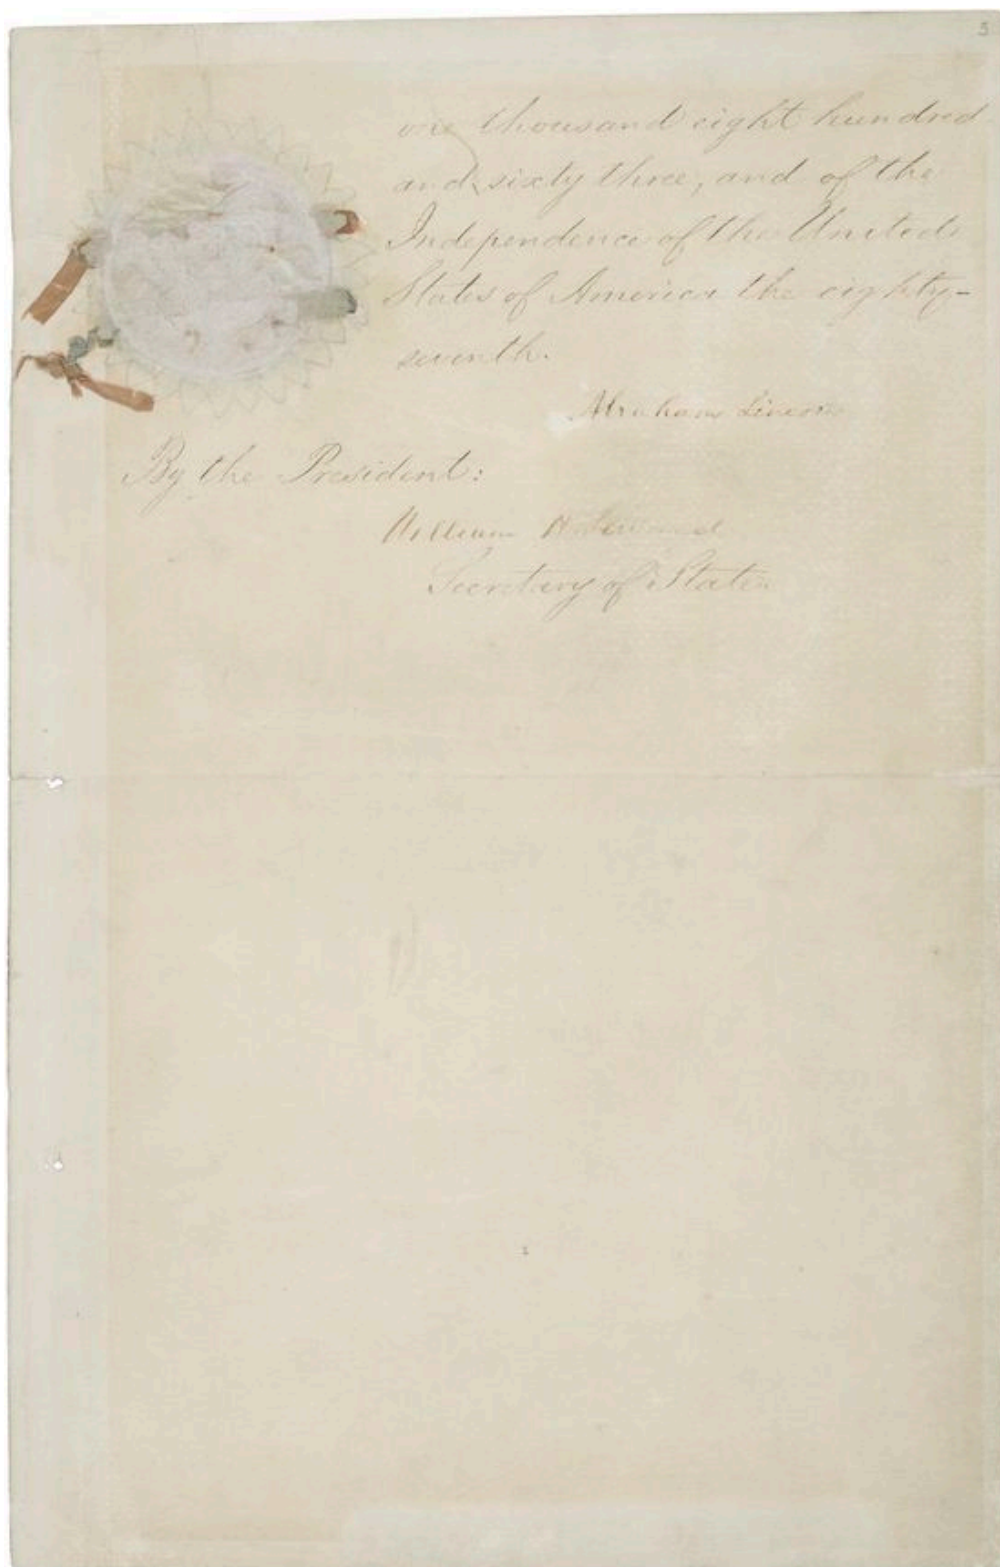 5
one thousand eight hundred
and sixty three, and of the
Independence of the United
States of America the eighty-
seventh.
Abraham Lincoln
By the President:
William H. Seward
Secretary of State.